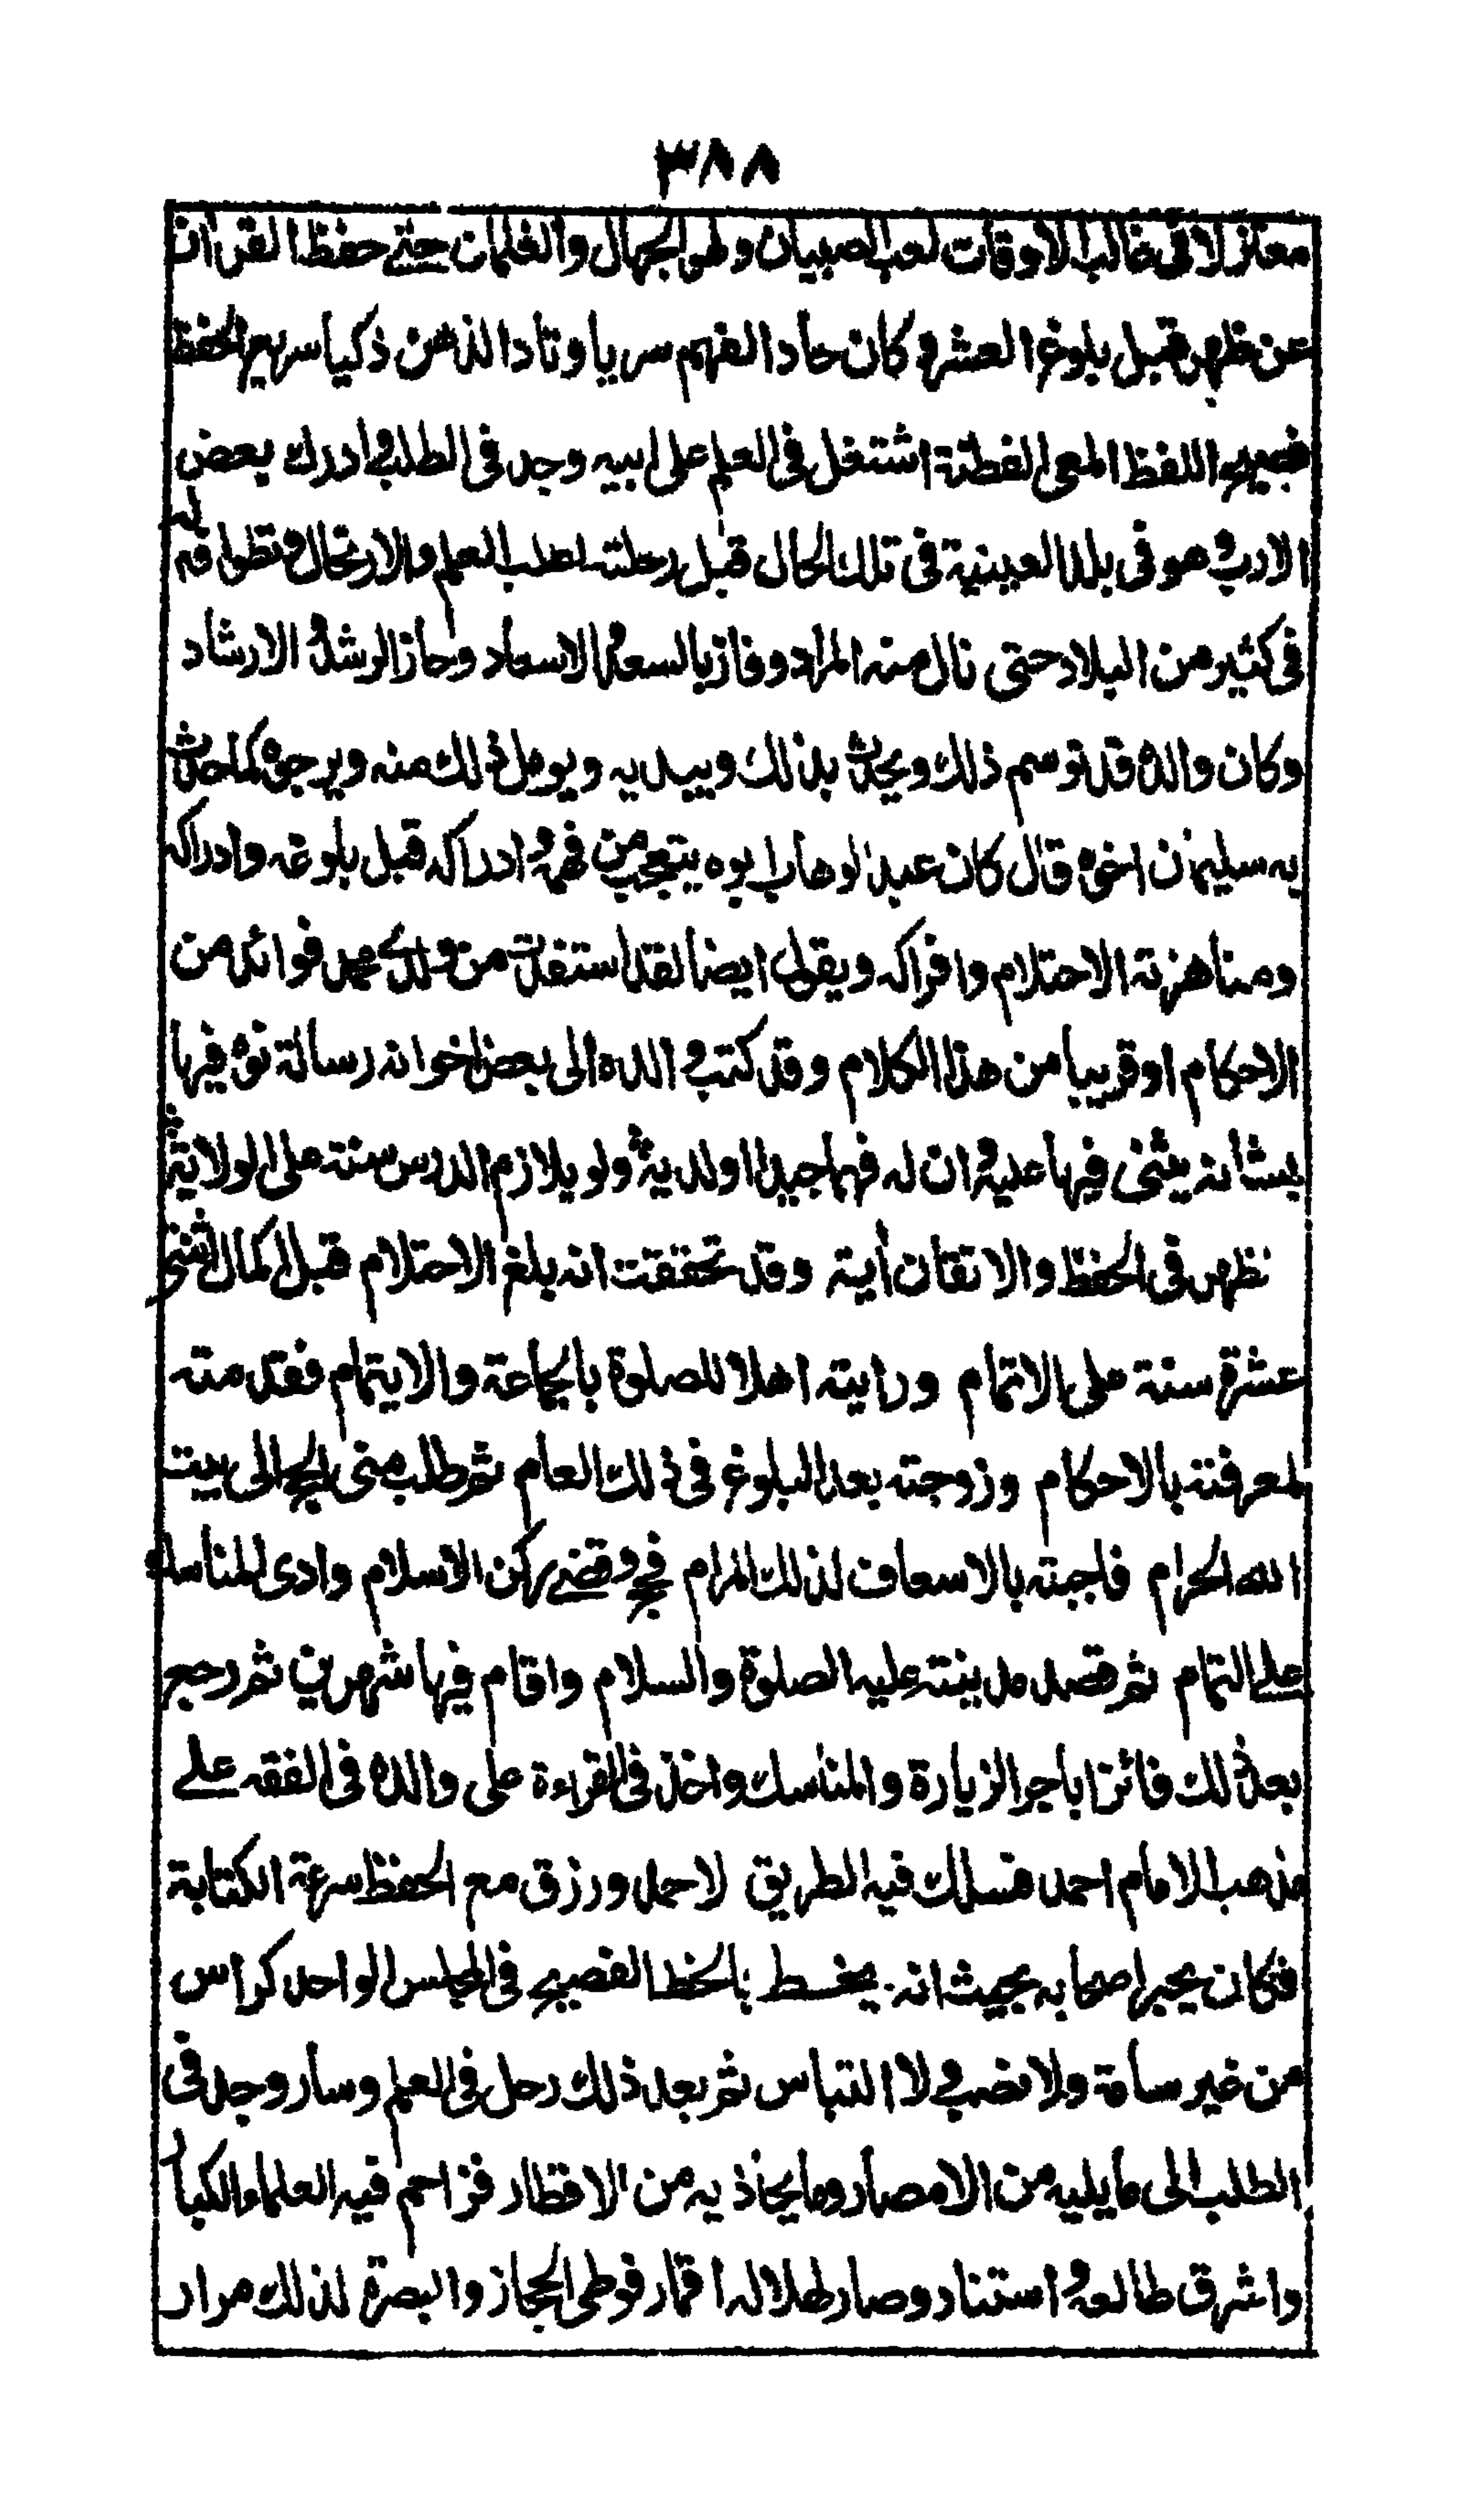 ٣٨٨
معتزلا فى غالب الاوقات لعب الصبيان ولهو الجهال والغلمان حتى حفظ القرآن
عن ظهر قبل بلوغ العشر وكان حاد الفهم سريا وقاد الذهن ذكيا سريع الحفظ
فصيح اللفظ المعى الفطنة اشتغل فى العلم على ابيه وجد فى الطلب وادرك بعض
الارب وهو فى بلد العيينية فى تلك الحال قبل رحلته لطلب العلم والارتحال وتطوافه له
فى كثير من البلاد حتى نال منه المراد وفاز بالسعد والاسعاد وحاز الرشد والارشاد
وكان والده قد توسم ذلك ويحدث بذلك ويبديه ويومل ذلك منه ويرجوه كما حدث
به سليمان اخوه قال كان عبد الوهاب ابوه يتعجب من فهمه وادراكه قبل بلوغه وادراكه
ومناهزته الاحتلام وافراكه ويقول ايضا لقد استفدت من ولدى محمد فوائد من
الاحكام او قريبا من هذا الكلام وقد كتب والده الى بعض اخوانه رسالة نوه فيها
بشانه يثنى فيها عليه وان له فهما جيدا ولديه ولو يلازم الدرس سنة على الولاية
تظهر فى الحفظ والاتقان أية وقد تحققت انه بلغ الاحتلام قبل اكمال اثنتى
عشرة سنة على الاتمام ورايته اهلا للصلوة بالجماعة والايتمام فقدمته
لمعرفته بالاحكام وزوجته بعد البلوغ فى ذلك العام ثم طلب منى الحج الى بيت
الله الحرام فاجبته بالاسعاف لذلك المرام فحج وقضى ركن الاسلام وادى المناسك
على التمام ثم قصد مدينته عليه الصلوة والسلام واقام فيها شهرين ثم رجع
بعد ذلك فائزا باجر الزيارة والمناسك واخذ فى القراءة على والده فى الفقه على
مذهب الامام احمد فسلك فيه الطريق لاحمد ورزق مع الحفظ سرعة الكتابة
فكان يحير اصحابه بحيث انه يخط بالخط الفصيح فى المجلس الواحد كراس
من غير سامة ولا نصب ولا التباس ثم بعد ذلك رحل فى العلم وسار وجد فى
الطلب الى ما يليه من الامصار وما يحاذيه من الاقطار فزاحم فيه العلماء الكبار
واشرق طالعه واستنار وصار هلاله اقمار فوطى الحجاز والبصرة لذلك مرار